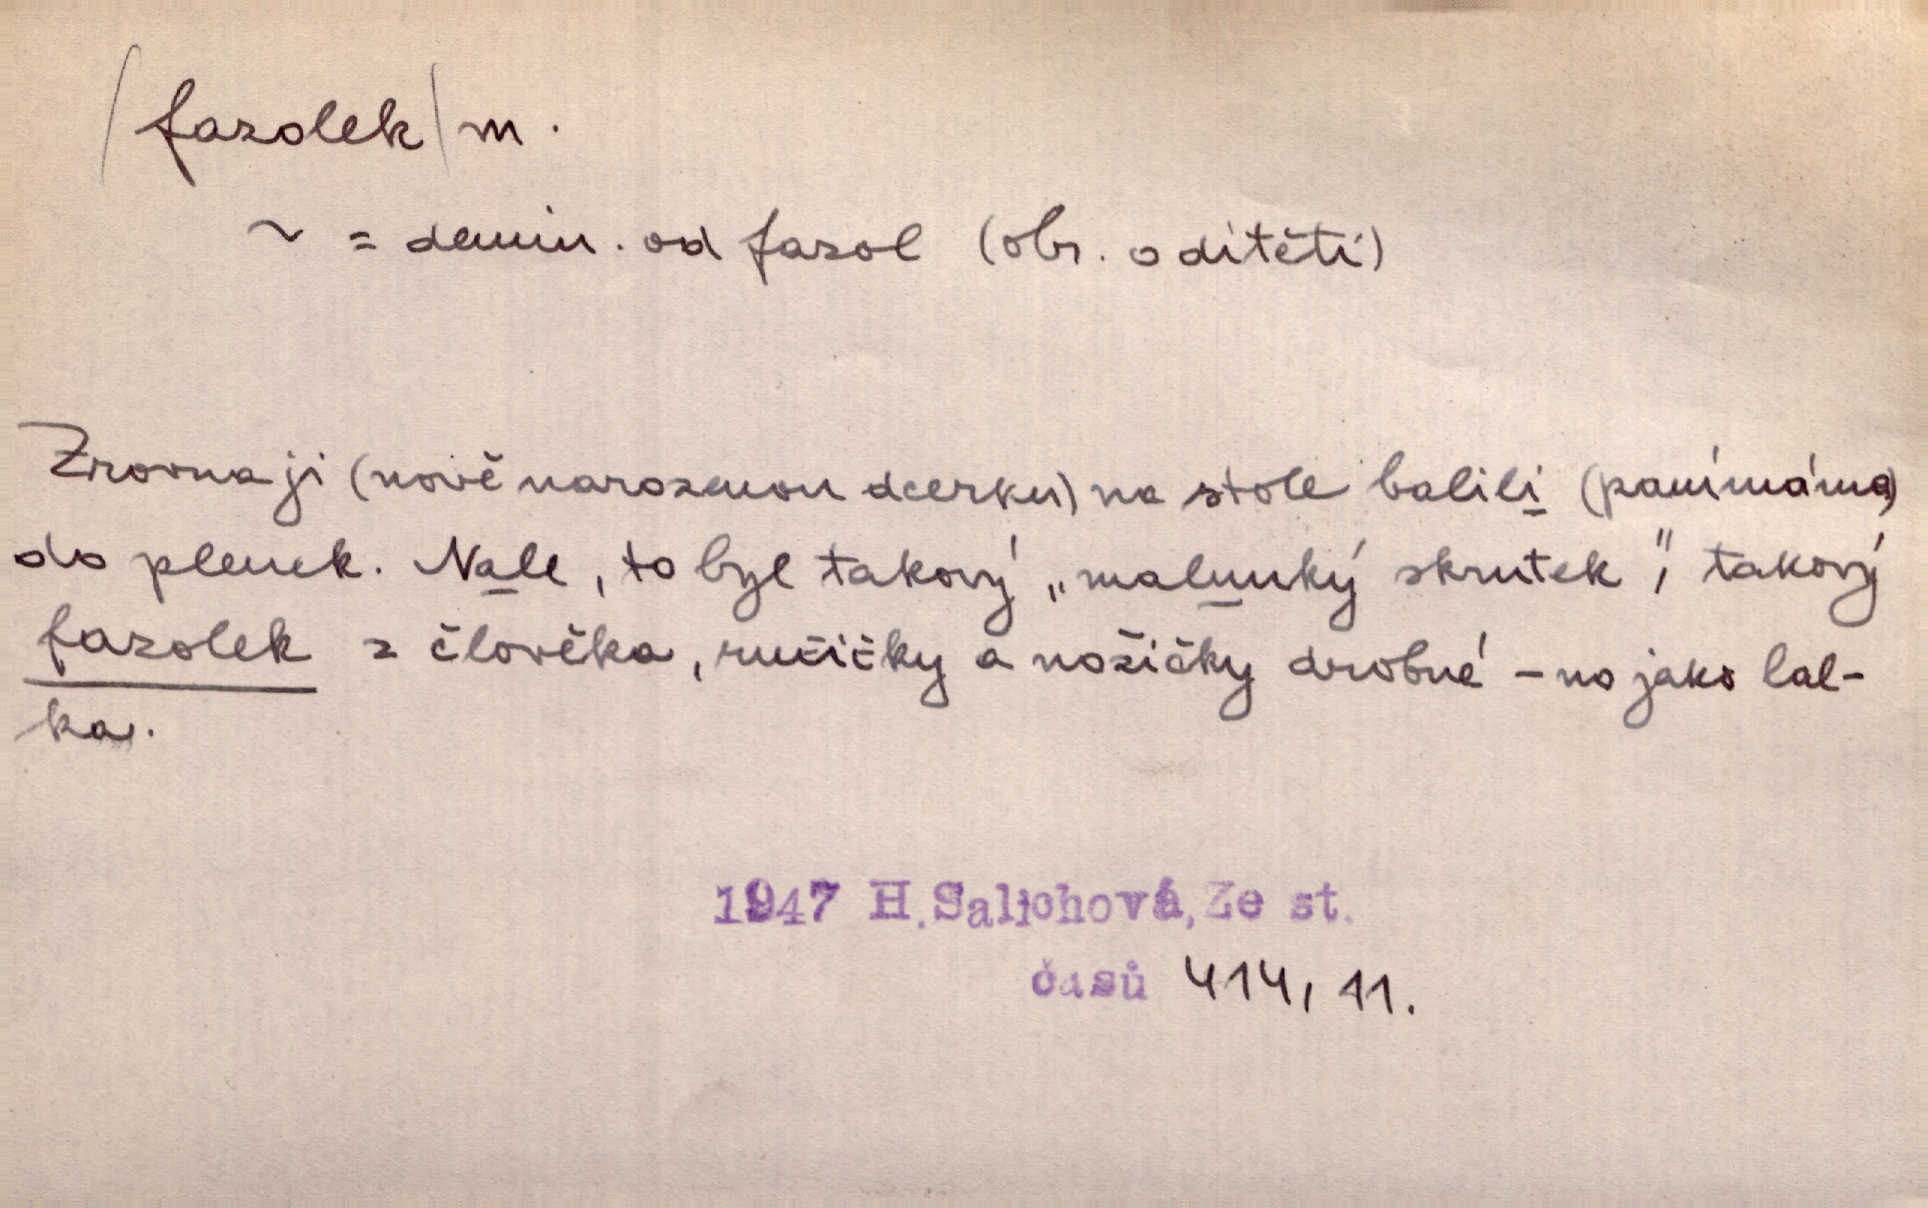 (fazolek) m.
~ = demin. od fazol (obr. o dítěti)
Zrovna ji (nově narozenou dcerku) na stole balili (panímáma)
do plenek. Nale, to byl takový „malunký skrutek“, takový
fazolek z člověka, ručičky a nožičky drobné – no jako lal-
ka.
1947 H.Salichová, Ze st.
časů 414, 11.